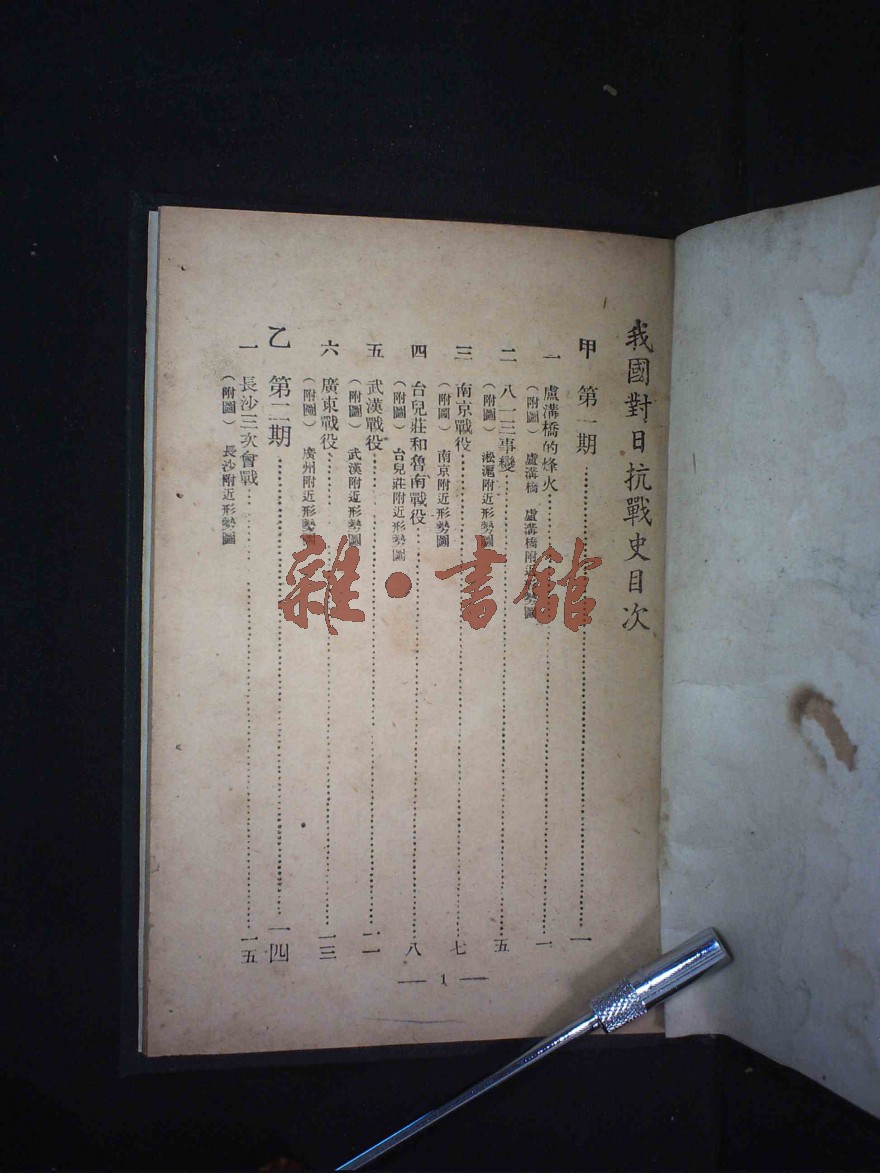 我國對日抗戰史目次
甲 第一期……一
一 盧溝橋的烽火……一
(附圖) 盧溝橋 盧溝橋附近形勢圖
二 八一三事變……五
(附圖) 淞滬附近形勢圖
三 南京戰役……七
(附圖) 南京附近形勢圖
四 台兒莊和魯南戰役……八
(附圖) 台兒莊附近形勢圖
五 武漢戰役……一一
(附圖) 武漢附近形勢圖
六 廣東戰役……一三
(附圖) 廣州附近形勢圖
乙 第二期……一四
一 長沙三次會戰……一五
(附圖) 長沙附近形勢圖
— 1 —
雜·書館